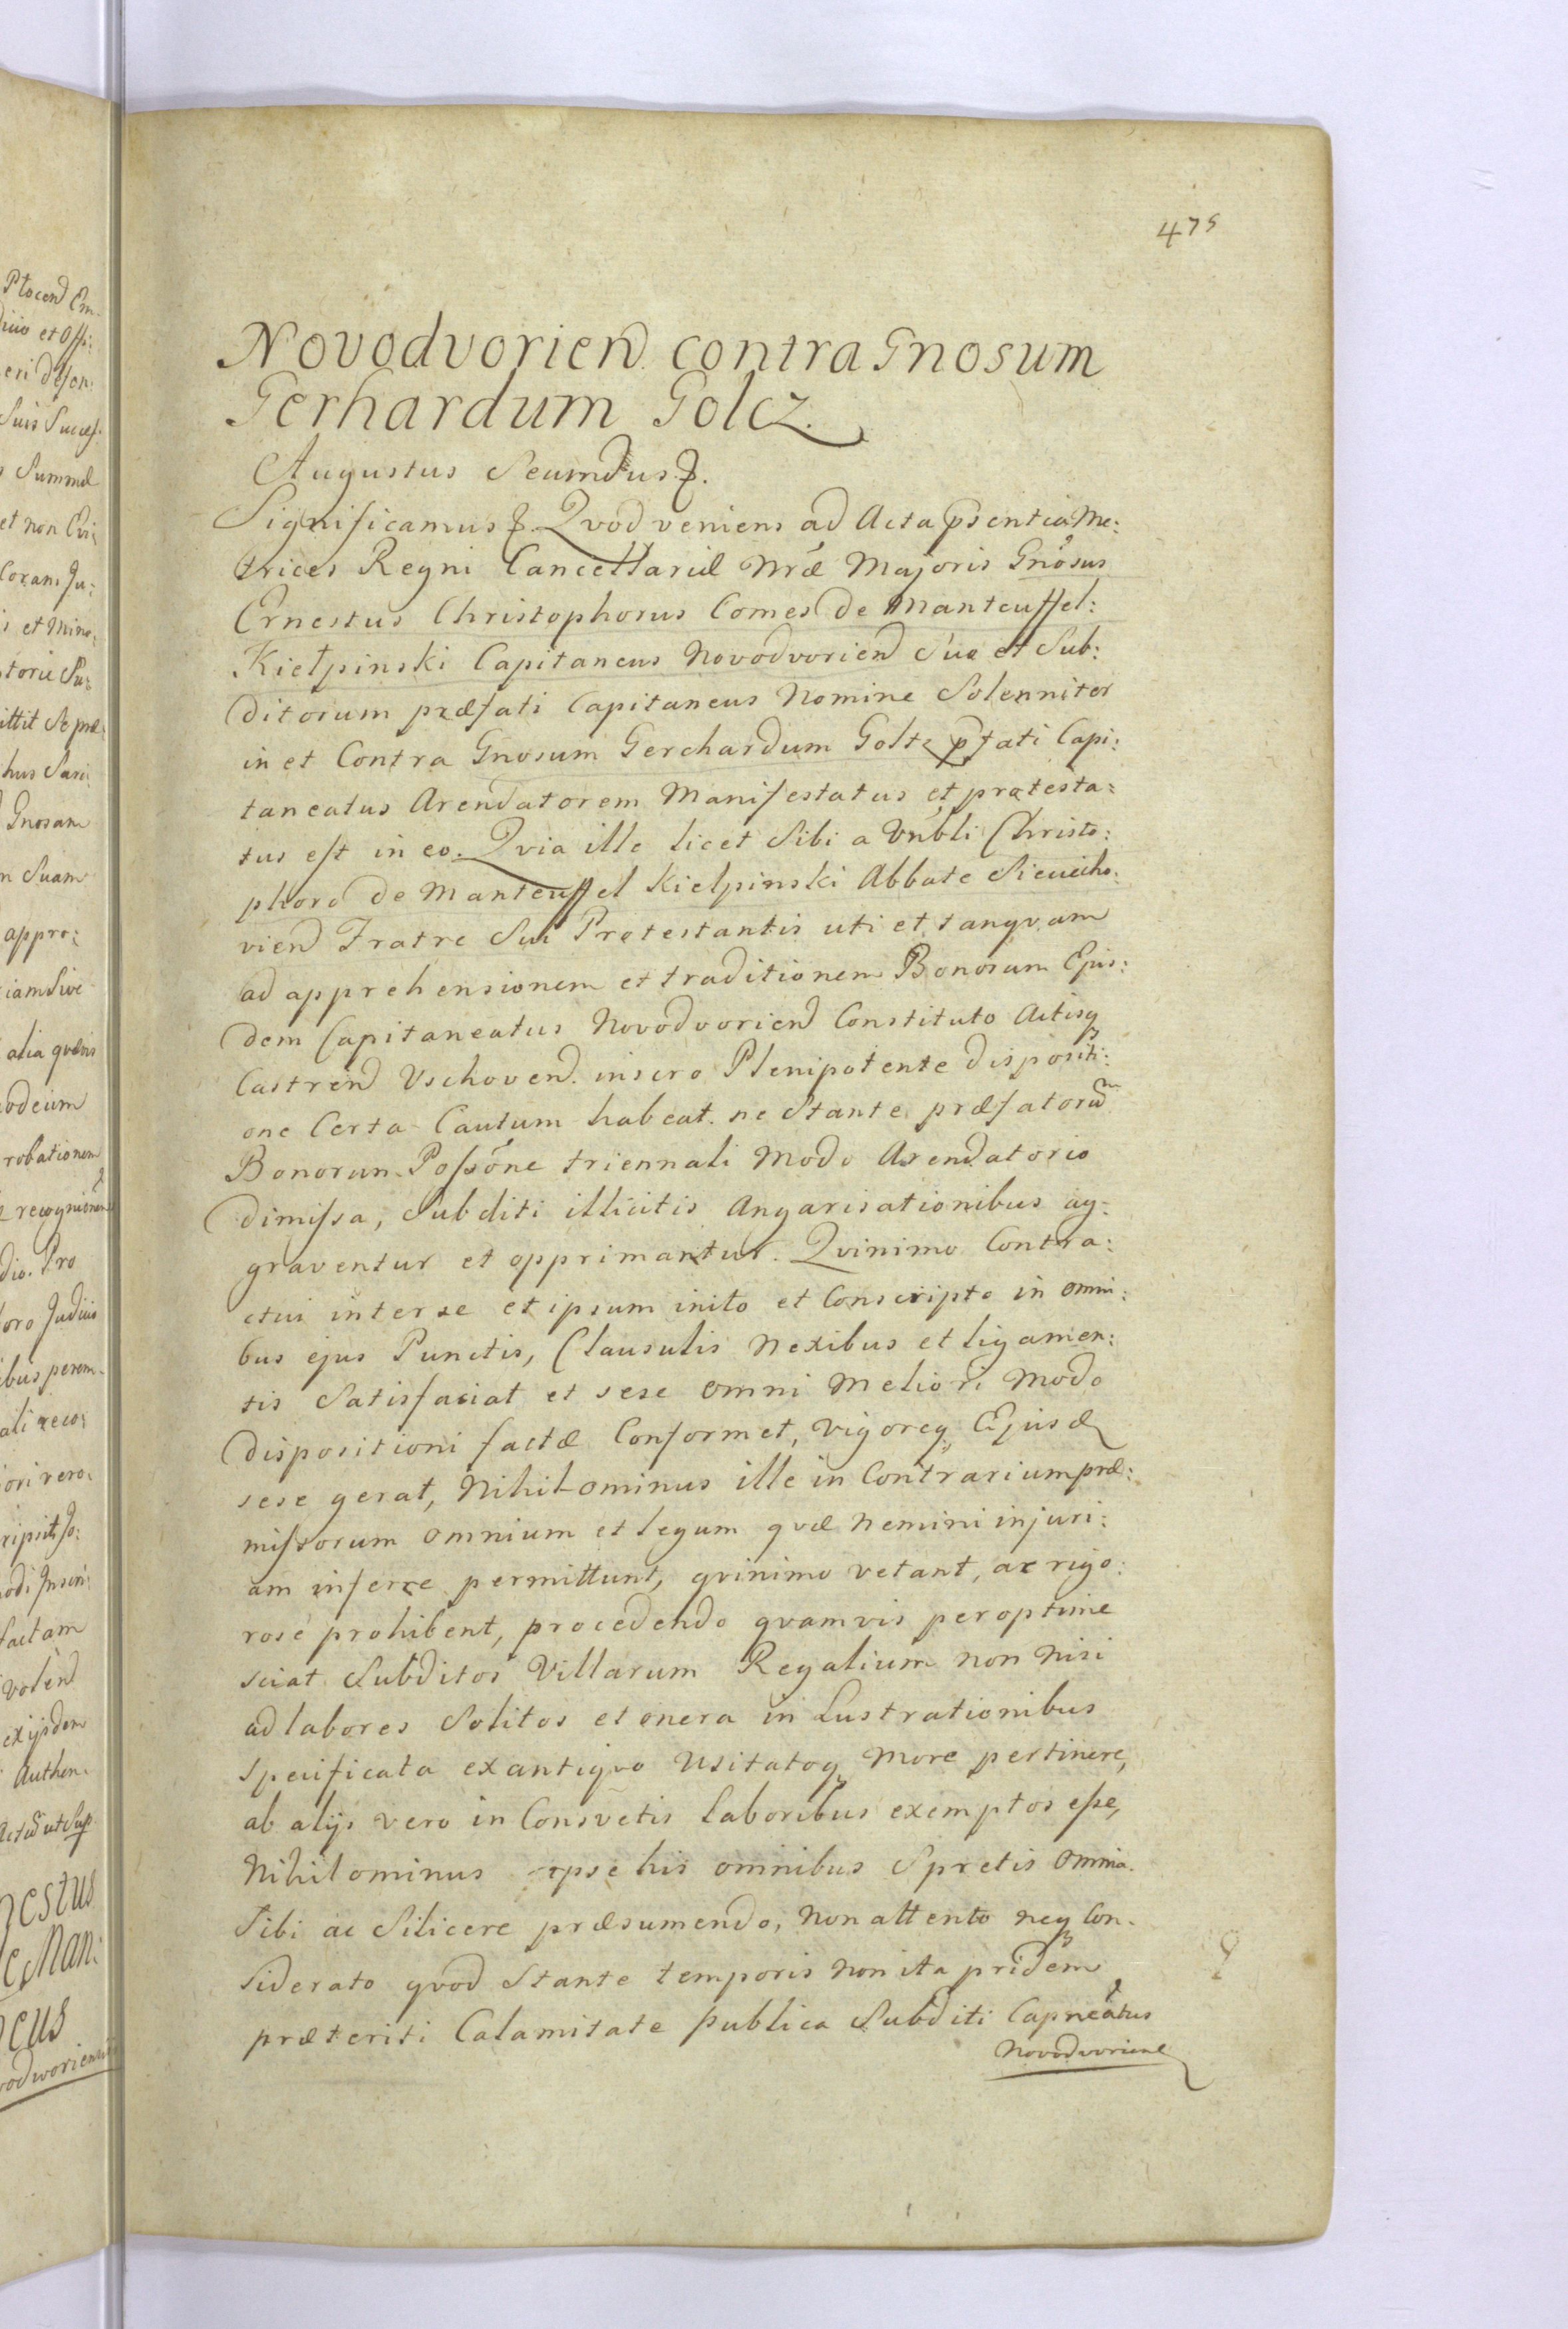 475
Novodvorien contra Gnosum
Gerhardum Golcz.
Augustus Secundus &.
Significamus &. Qvod veniens ad Acta psentia Me:
trices Regni Cancellariæ Nræ Majoris Gnosus
Ernestus Christophorus Comes de Manteuffel:
Kiełpinski Capitaneus Novodvorien Suo et Sub:
ditorum præfati Capitaneus Nomine Solenniter
in et Contra Gnosum Gerchardum Goltz pfati Capi:
taneatus Arendatorem Manifestatus et protesta:
tus est in eo. Qvia ille licet Sibi a Vnbli Christo:
phoro de Manteuffel Kielpinski Abbate Sieciecho:
vien Fratre Sui Protestantis uti et tanqvam
ad apprehensionem et traditionem Bonorum Ejus:
dem Capitaneatus Novodvorien Constituto Actisq
Castren Vschoven. insero Plenipotente dispositi:
one Certa Cautum habeat. ne Stante præfatorũ
Bonorun Possõne triennali Modo Arendatorio
dimissa, Subditi illicitis Angarisationibus ag:
graventur et opprimantur. Qvinimo Contra:
ctui inter se et ipsum inito et Conscripto in omni:
bus ejus Punctis, Clausulis Nexibus et ligamen:
tis Satisfaciat et sese omni Meliori Modo
dispositioni factæ Conformet, vigoreq Ejusd
sese gerat, Nihilominus ille in Contrarium præ:
missorum omnium et legum qvæ Nemini injuri:
am inferre permittunt, qvinimo vetant, ac rigo:
rosè prohibent, procedendo qvamvis peroptime
sciat Subditos Villarum Regalium non nisi
ad labores Solitos et onera in Lustrationibus
specificata ex antiqvo Usitatoq More pertinere,
ab alijs vero in Consvetis Laboribus exemptos esse,
Nihilominus ipse his omnibus Spretis omnia
Sibi ac Silicere præsumendo, Non attento neq Con:
siderato qvod Stante temporis non ita pridem
præteriti Calamitate publica Subditi Capneatus
Novodvoriens